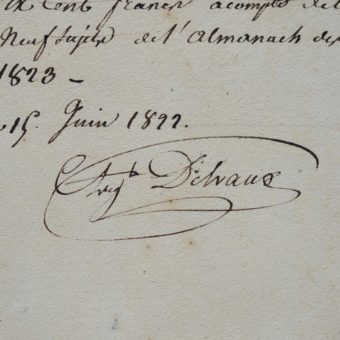 Cent francs acompte de
Neuf Sujets de l'Almanach des
1823 -
15. Juin 1822.
Delvaux